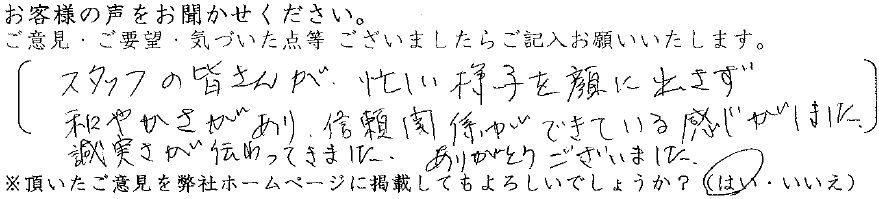 お客様の声をお聞かせください。
ご意見・ご要望・気づいた点等 ございましたらご記入お願いいたします。
スタッフの皆さんが、忙しい様子を顔に出さず
和やかさがあり、信頼関係ができている感じがしました。
誠実さが伝わってきました。ありがとうございました。
※頂いたご意見を弊社ホームページに掲載してもよろしいでしょうか？（はい・いいえ）